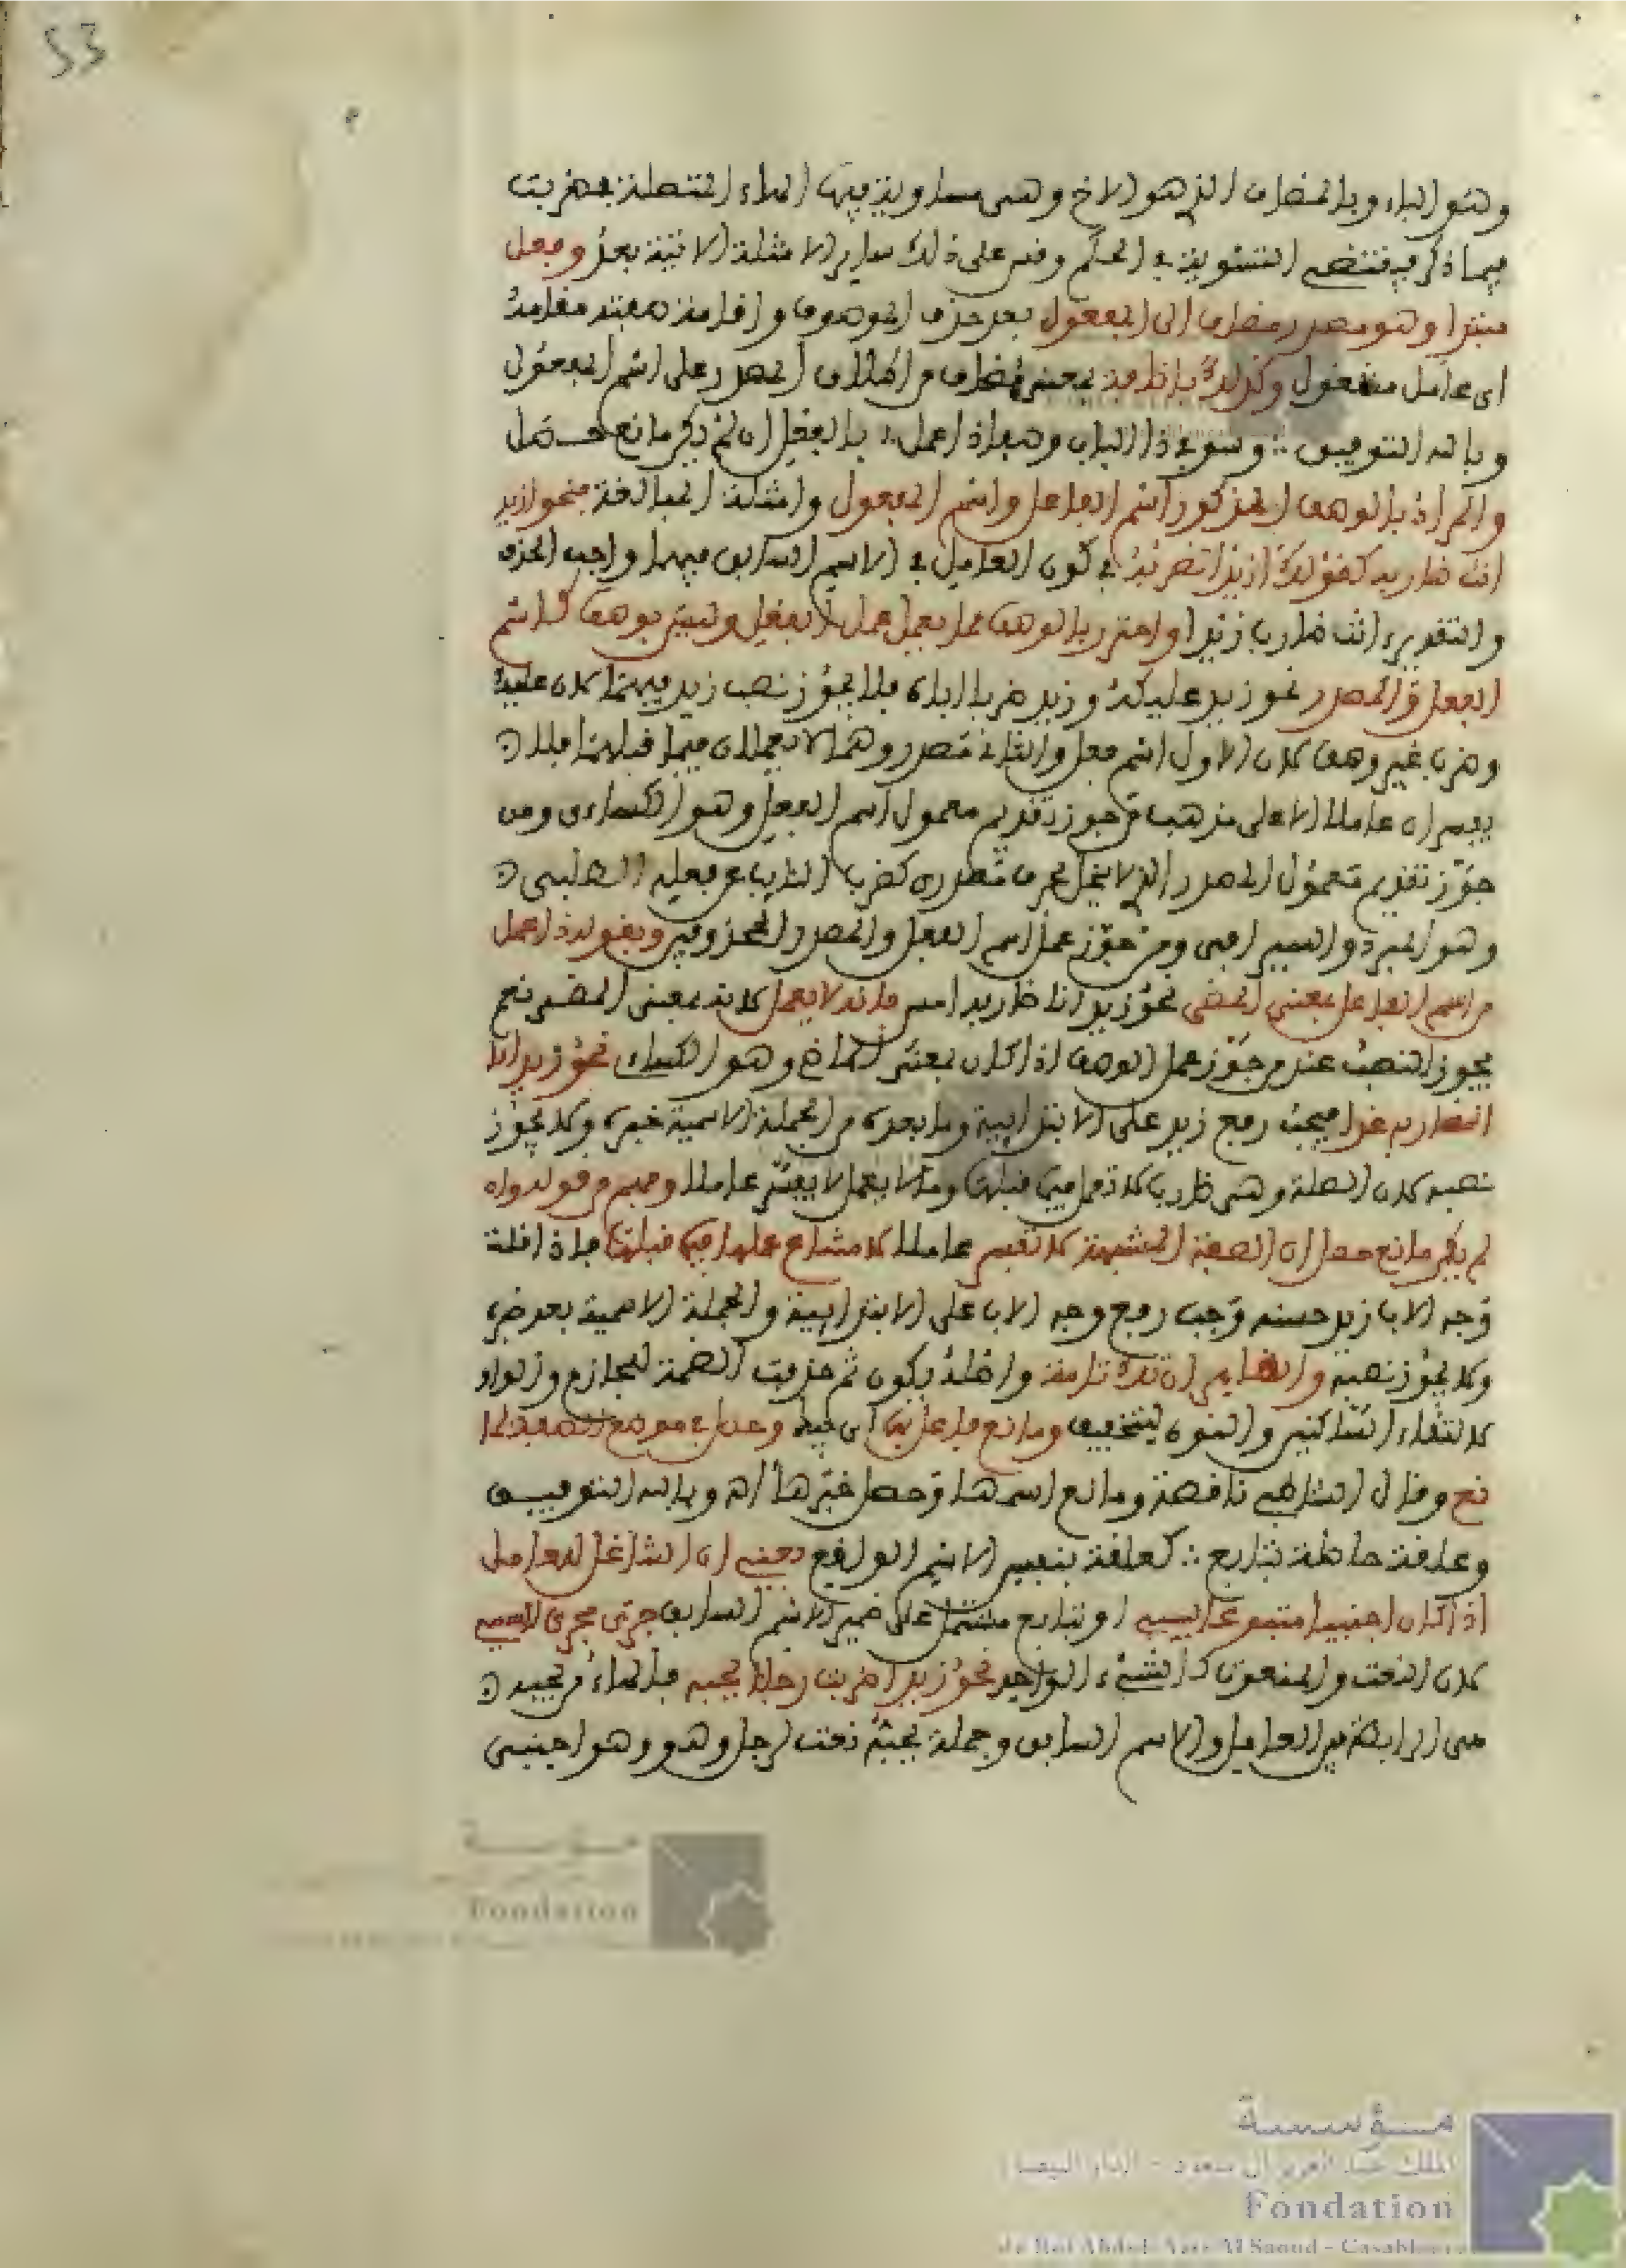 53
وهو الباء وبالمضاف الذي هو الاخ وهي مساوية الهاء المتصلة بضربت
فيما ذكر فيقتضي التسوية في الحكم وقس على ذلك ساير الامثلة الاتية بعد وفصل
مبتدا وهو مصدر مضاف الى المفعول بعد حذف الموصوف واقامة صفته مقامه
اى عامل مشغول وكذلك باضافة بمعنى مضاف من اطلاق المصدر على اسم المفعول
وبالله التوفيق ∴ وسو في ذا الباب وصفا ذا عمل ∴ بالفعل ان لم يك مانع حصل
والمراد بالوصف المذكور اسم الفاعل واسم المفعول وامثلة المبالغة فنحو ازيد
انت ضاربه كقولك ازيدا تضربه في كون العامل في الاسم السابق فيهما واجب الحذف
والتقدير انت ضارب زيدا واحترز بالوصف مما يعمل عمل الفعل وليس بوصف كاسم
الفعل والمصدر نحو زيد عليكه وزيد ضربا اياه فلا يجوز نصب زيد فيهما لان عليك
وضربا غير وصف لان الاول اسم فعل والثاني مصدر وهما لا يعملان فيما قبلهما فلا
يفسران عاملا الا على مذهب من جوز تقديم معمول اسم الفعل وهو الكساءى ومن
جوز تقديم معمول المصدر الذي لا ينحل بحرف مصدرى كضربا النايب عن فعله الطلبى
وهو المبرد والسيرافى ومن جوز عمل اسم الفعل والمصدر المحذوفين وبقوله ذا عمل
من اسم الفاعل بمعنى المضي نحو زيد انا ضاربه امس فانه لا يعمل لانه بمعنى المضي نعم
يجوز النصب عند من جوز عمل الوصف اذا كان بمعنى الماضي وهو الكساءى نحو زيد انا
الضاربه غدا فيجب رفع زيد على الابتداىية وما بعده من الجملة الاسمية خبره ولا يجوز
نصبه لان الصلة وهي ضارب لا تعمل فيما قبلها وما لا يعمل لا يفسر عاملا وفهم من قوله وان
لم يك مانع حصل ان الصفة المشبهة لا تفسر عاملا لامتناع عملها فيما قبلها فاذا قلت
وجه الاب زيد حسنه وجب رفع وجه الاب على الابتداىية والجملة الاسمية بعده خبره
ولا يجوز نصبه والظاهر ان تك تامة واصله يكون ثم حذفت الضمة للجازم والواو
لالتقاء الساكنين والنون للتخفيف ومانع فاعل بها اى بيك وحصل في موضع الصفة لما
نع وقال الشاطبي ناقصة ومانع اسمها وحصل خبرها اه وبالله التوفيق
وعلقة حاصلة بتابع ∴ كعلقة بنفس الاسم الواقع يعني ان الشاغل للعامل
اذا كان اجنبيا متبوعا بسببي او بتابع مشتمل على ضمير الاسم السابق جرى مجرى السببي
لان النعت والمنعوت كالشيء الواحد نحو زيدا ضربت رجلا يحبه فالهاء من يحبه
هى الرابطة بين العامل والاسم السابق وجملة يحبه نعت لرجل وهو وهو اجنبى
مؤسسة
Fondation
مؤسسة
الملك عبد العزيز آل سعود - الدار البيضاء
Fondation
du Roi Abdul-Aziz Al Saoud - Casablanca